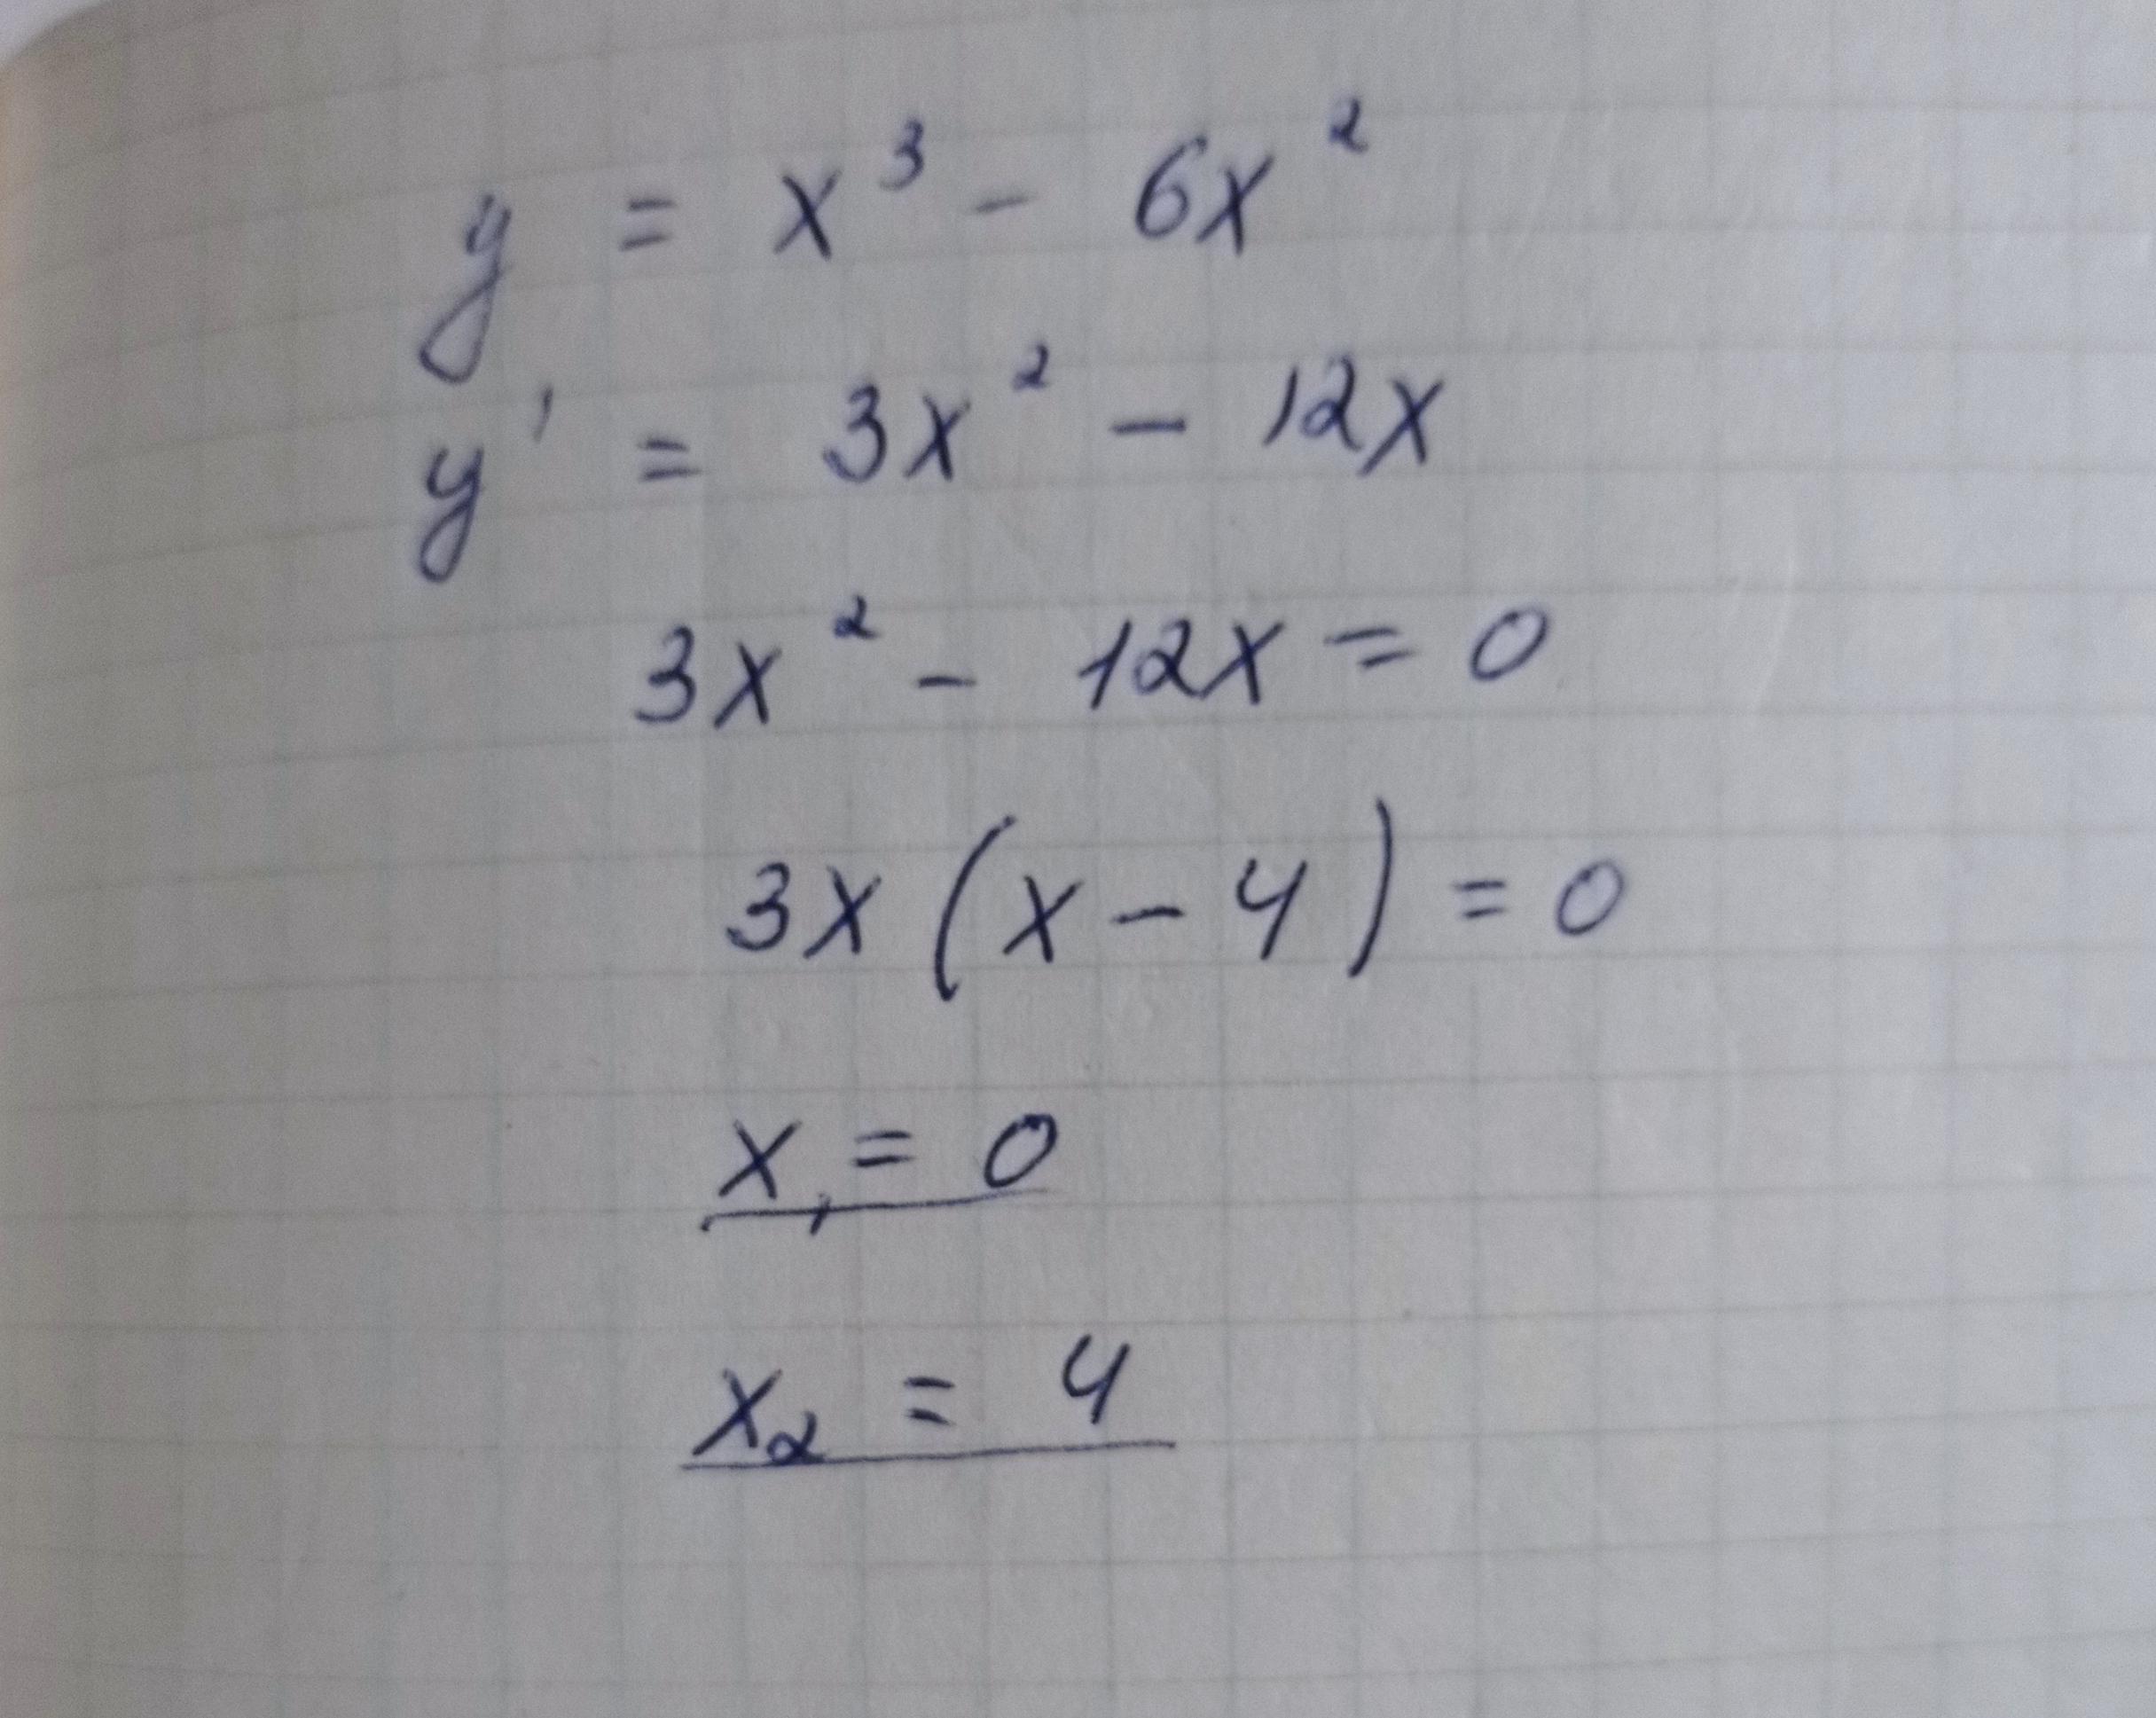 y = x³ - 6x²
y' = 3x² - 12x
3x² - 12x = 0
3x (x - 4) = 0
x₁ = 0
x₂ = 4